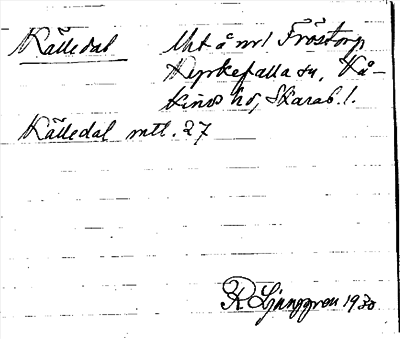 Källedal Utt å nr 1 Fröstorp
Kyrkefalla sn, Kå-
kinds hd, Skarab. l.
Källedal mtl. 27
R Ljunggren 1930